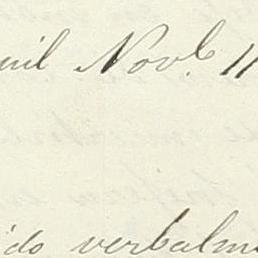 uil Novb. 11
ido verbalme